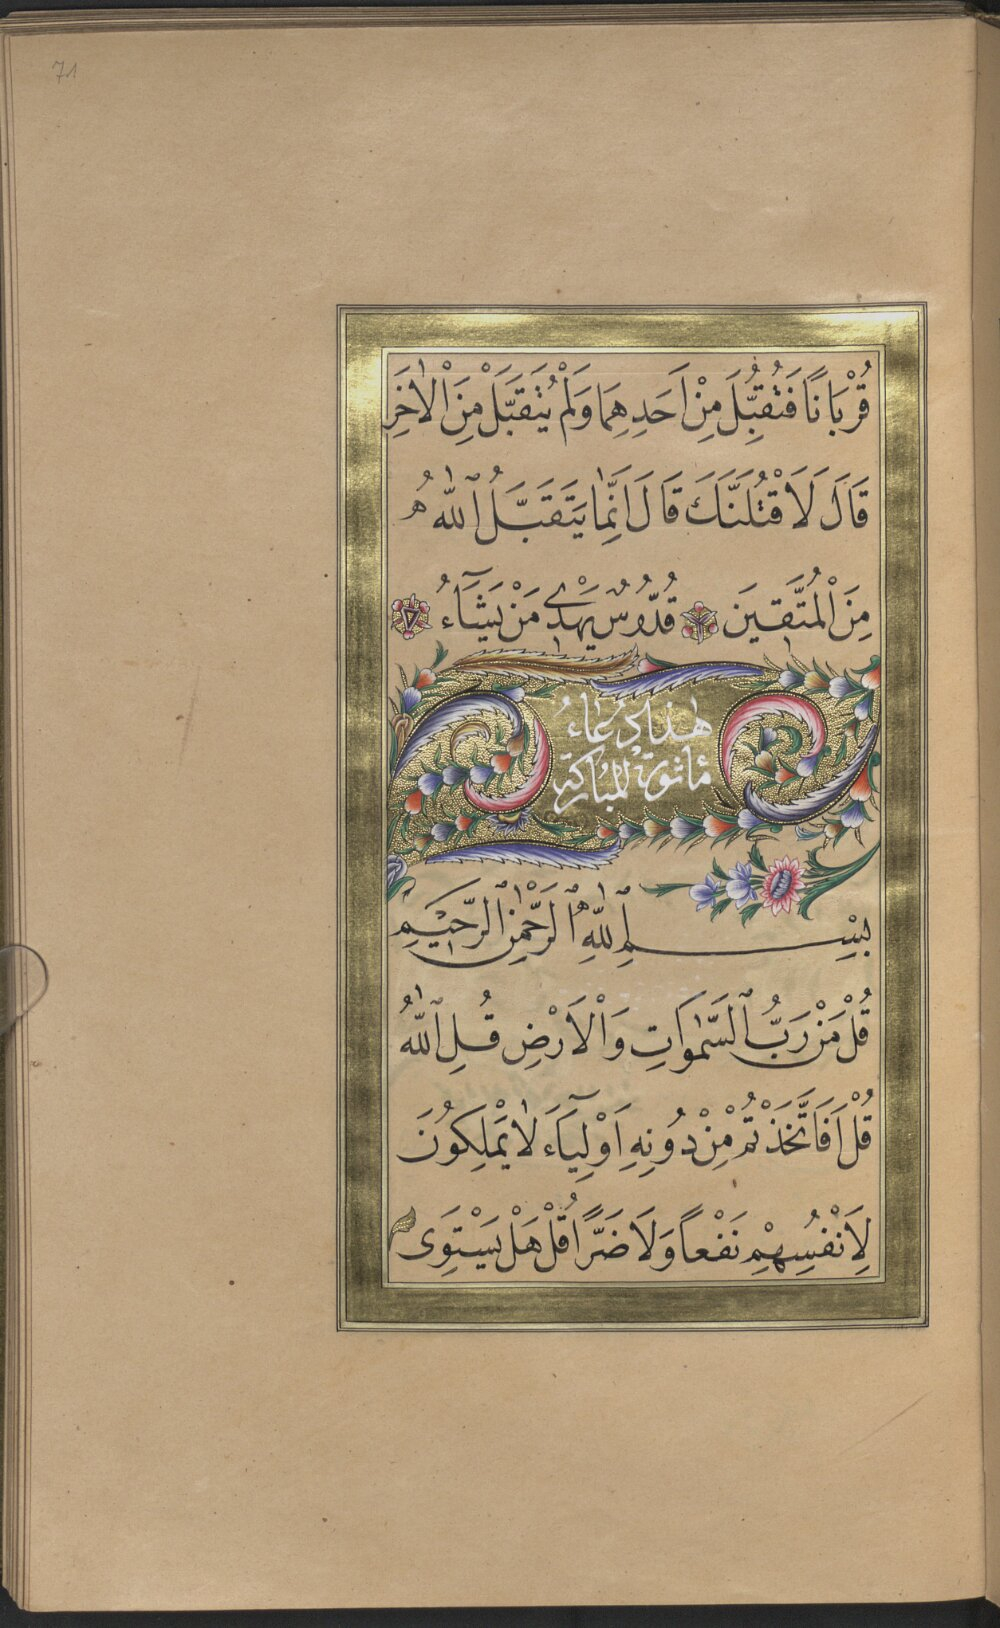 71
قُرْبَانًا فَتُقُبِّلَ مِنْ اَحَدِهِمَا وَلَمْ يُتَقَبَّلْ مِنَ الْاٰخَرِ
قَالَ لَاَقْتُلَنَّكَ قَالَ اِنَّمَا يَتَقَبَّلُ اللّٰهُ
مِنَ الْمُتَّقِينَ قُدُّوسٌ يَهْدِي مَنْ يَشَآءُ
هٰذَا دُعَاءُ
مأثورة المباركة
بِسْمِ اللّٰهِ الرَّحْمٰنِ الرَّحِيمِ
قُلْ مَنْ رَبُّ السَّمٰوَاتِ وَالْاَرْضِ قُلِ اللّٰهُ
قُلْ اَفَاتَّخَذْتُمْ مِنْ دُونِهِ اَوْلِيَآءَ لَا يَمْلِكُونَ
لِاَنْفُسِهِمْ نَفْعًا وَلَا ضَرًّا قُلْ هَلْ يَسْتَوِى